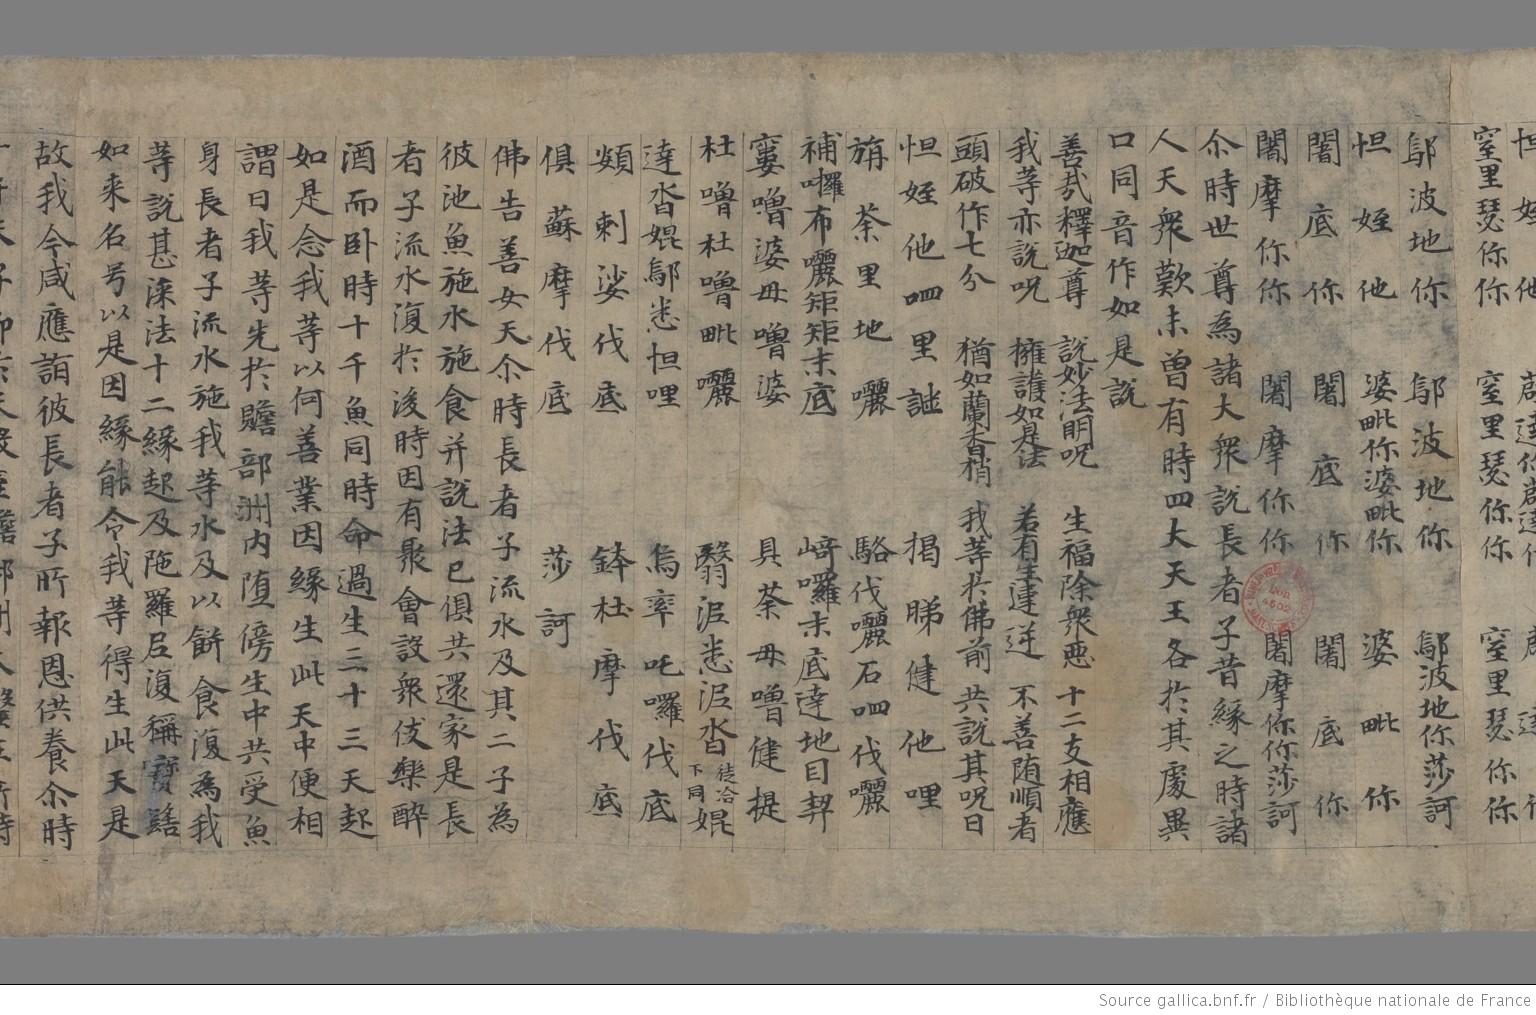 窒里瑟你你 窒里瑟你你 窒里瑟你你
鄔波地你 鄔波地你 鄔波地你莎訶
怛姪他 婆毗你婆毗你 婆毗你
闍底你 闍底你 闍底你
闍摩你你 闍摩你你 闍摩你你莎訶
尒時世尊為諸大衆說長者子昔緣之時諸
人天衆歎未曾有時四大天王各於其處異
口同音作如是說
善哉釋迦尊 說妙法明呪 生福除衆惡 十二支相應
我等亦說呪 擁護如是法 若有生違逆 不善隨順者
頭破作七分 猶如蘭香梢 我等於佛前 共說其呪曰
怛姪他呬里謎 揭睇健他哩
旃荼里地囇 騷伐囇石呬伐囇
補囉布囇矩矩末底 崎囉末底達地目契
寠嚕婆母嚕婆 具荼母嚕健提
杜嚕杜嚕毗囇 瞖泥悉泥沓徒洽下同媲
達沓媲鄔悉怛哩 烏率吒囉伐底
頞剌娑伐底 鉢杜摩伐底
俱蘇摩伐底 莎訶
佛告善女天尒時長者子流水及其二子為
彼池魚施水施食并說法已俱共還家是長
者子流水復於後時因有聚會設衆伎樂醉
酒而卧時十千魚同時命過生三十三天起
如是念我等以何善業因緣生此天中便相
謂曰我等先於贍部洲內墮傍生中共受魚
身長者子流水施我等水及以餅食復為我
等說甚深法十二緣起及陁羅尼復稱寶髻
如来名号以是因緣能令我等得生此天是
故我今咸應詣彼長者子所報恩供養尒時
Source gallica.bnf.fr / Bibliothèque nationale de France